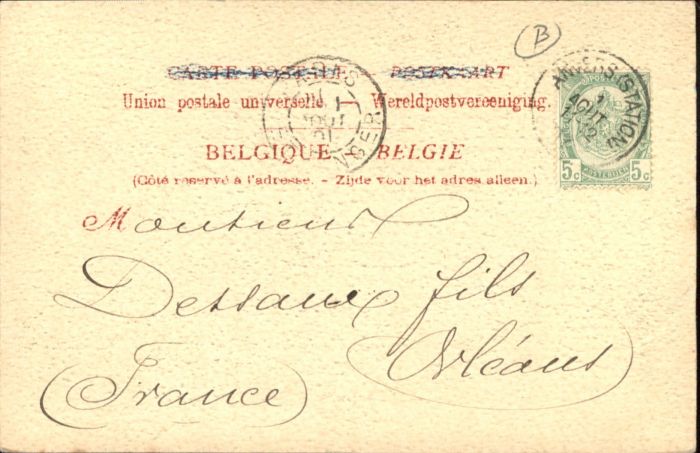 B
CARTE POSTALE — POSTKAART
Union postale universelle. — Wereldpostvereeniging.
BELGIQUE — BELGIE
(Côté réservé à l'adresse. - Zijde voor het adres alleen.)
ANVERS (STATION)
1
AOUT
5c 5c
Monsieur
Dessaux fils
Orléans
(France)